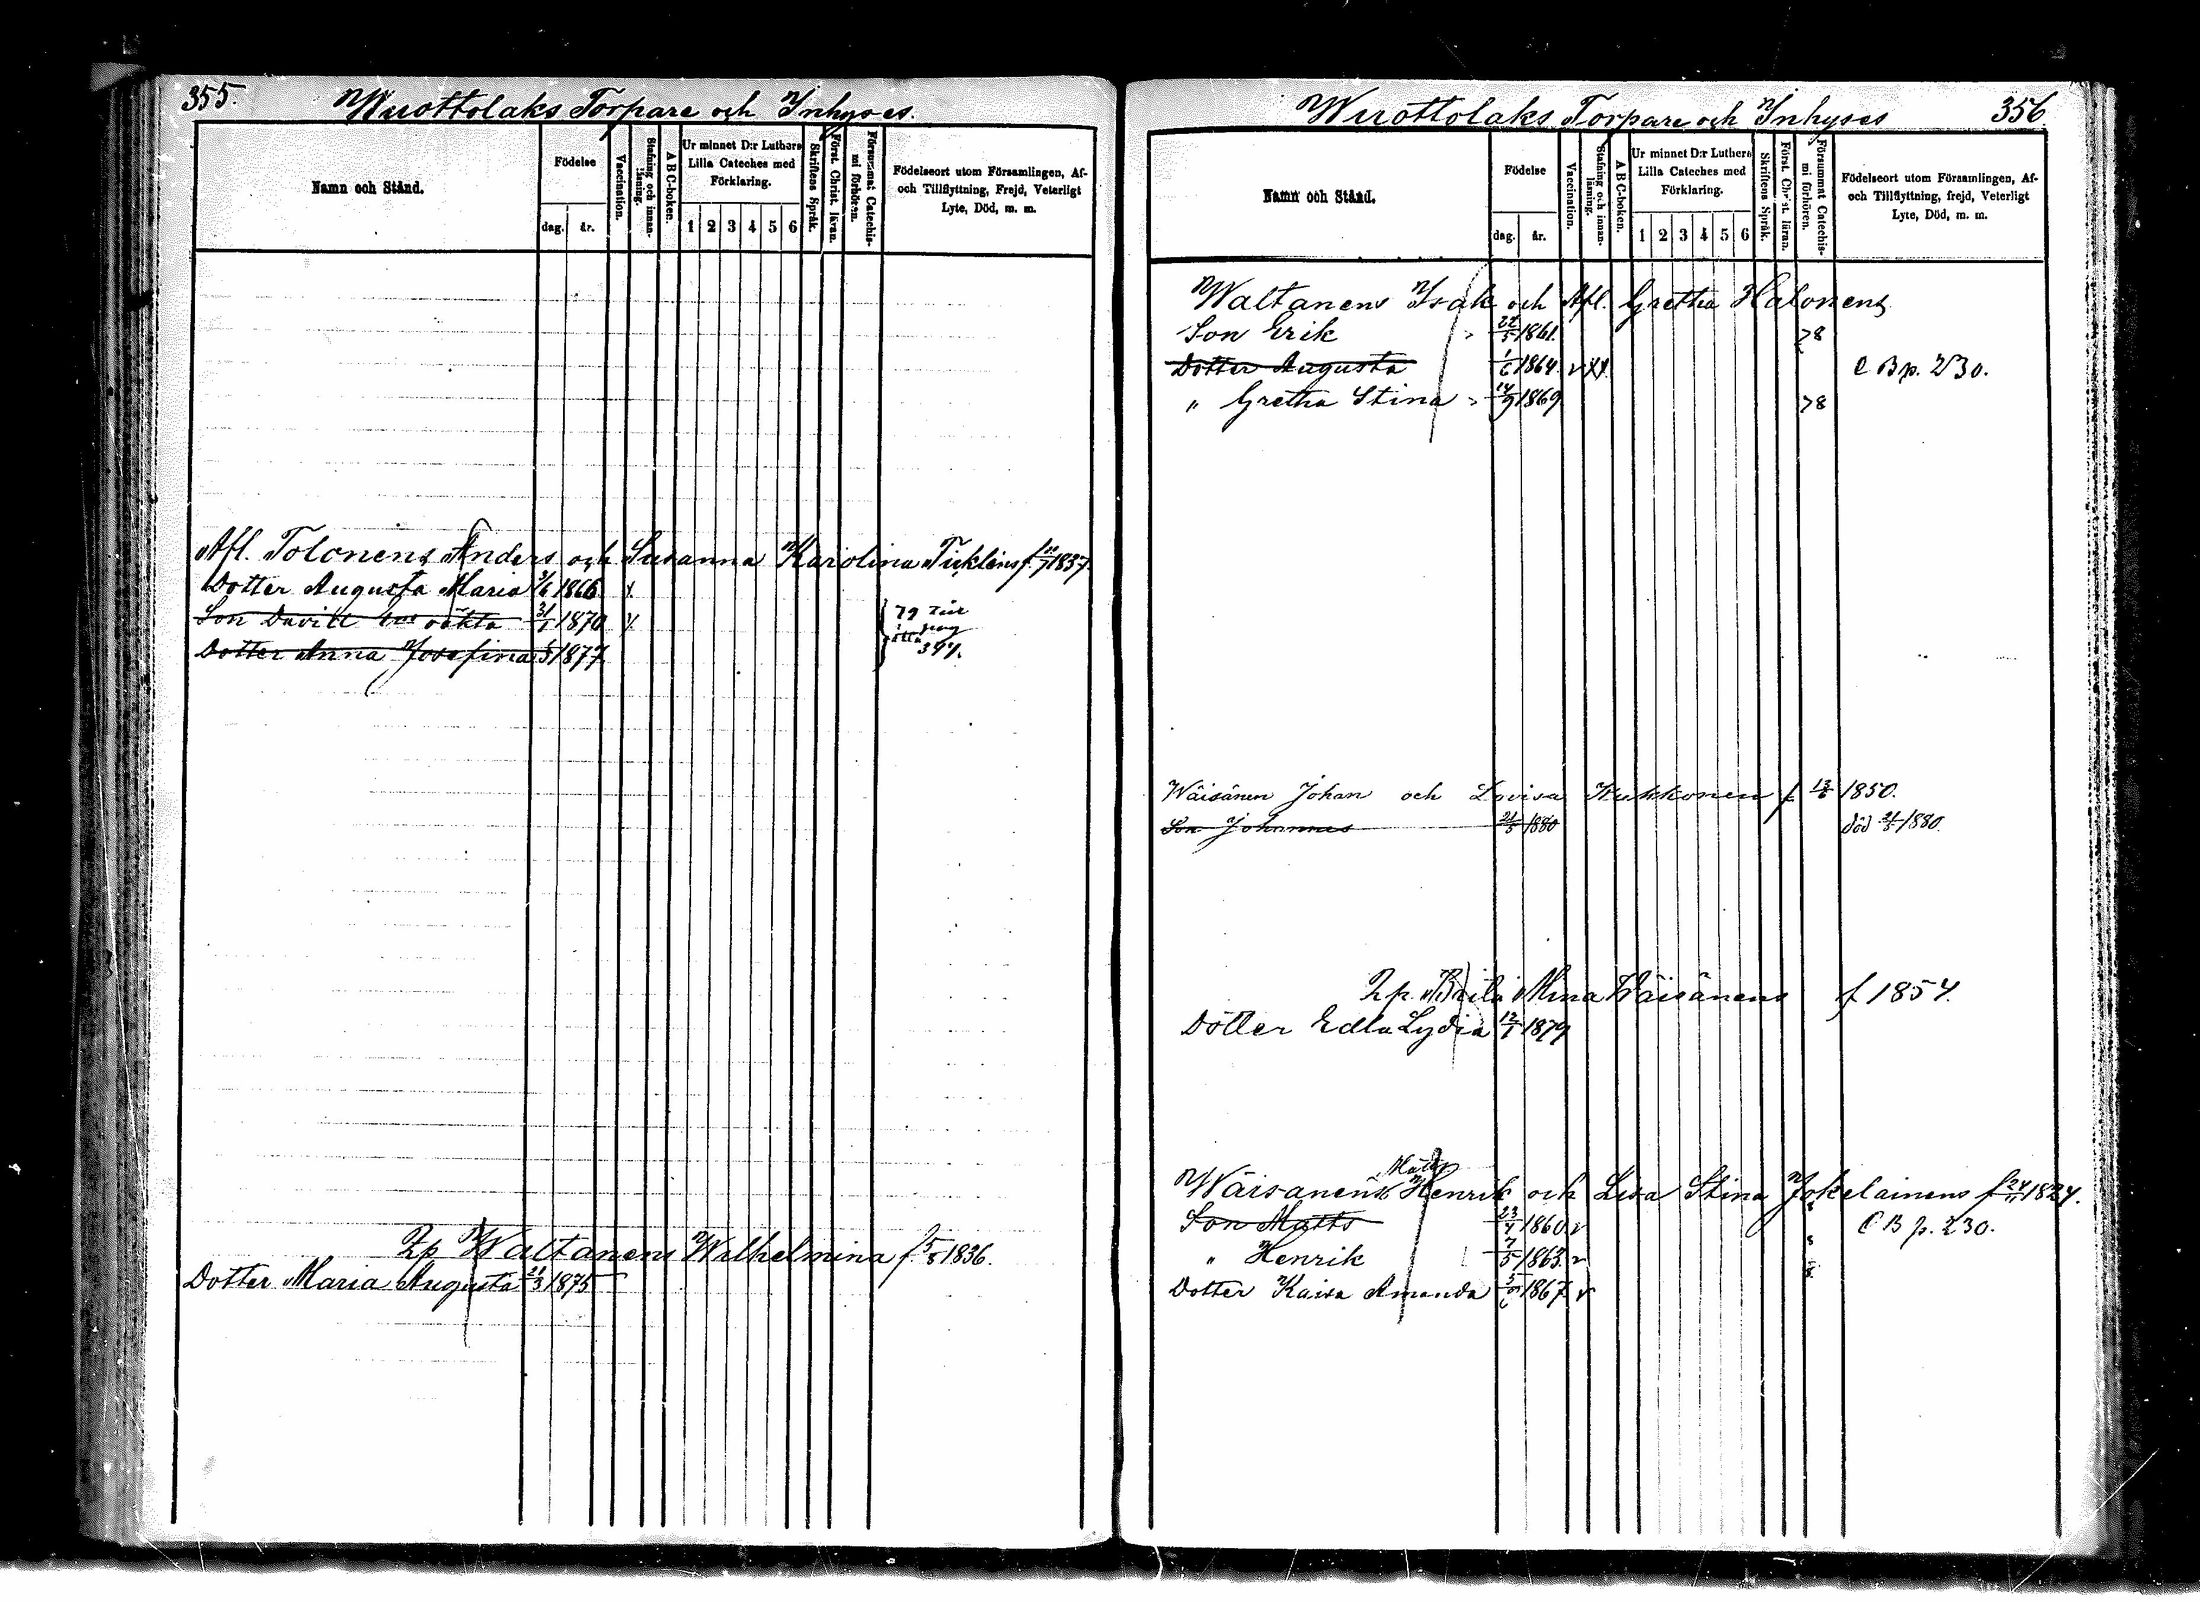 355.
Wuottolaks Torpare och Inhyses.
Namn och Stånd.
Födelse
dag.
år.
Vaccination.
Stafning och innan-
läsning.
A B C-boken.
Ur minnet D:r Luthers
Lilla Cateches med
Förklaring.
1 2 3 4 5 6
Skriftens Språk.
Först. Christ. läran.
Försummat Catechis-
mi förhören.
Födelseort utom Församlingen, Af-
och Tillflyttning, Frejd, Veterligt
Lyte, Död, m. m.
Afl. Tolonens Anders och Susanna Karolina Ticklens f. 1837
Dotter Augusta Maria 1866
Son David 31/1 1870
79
397.
Dotter Anna Josefina 1877
Hp Waltanens Wilhelmina f. 5/8 1836.
Dotter Maria Augusta 21/3 1875
Wuottolaks Torpare och Inhyses
356.
Namn och Stånd.
Födelse
dag.
år.
Vaccination.
Stafning och innan-
läsning.
A B C-boken.
Ur minnet D:r Luthers
Lilla Cateches med
Förklaring.
1 2 3 4 5 6
Skriftens Språk.
Först. Christ. läran.
Försummat Catechis-
mi förhören.
Födelseort utom Församlingen, Af-
och Tillflyttning, frejd, Veterligt
Lyte, Död, m. m.
Waltanens Isak och Afl. Gretha Halonens
Son Erik 22/5 1861. 78
Dotter Augusta 1/6 1864. C B p. 230.
" Gretha Stina 14/9 1869 78
Wäisänen Johan och Lovisa Kukkonen f. 1850.
Son Johannes 21/5 1880 död 1880.
Hp. Brita Mina Wäisänens f 1854.
Dotter Edla Lydia 12/1 1879
Matts
Wäisänens Henrik och Lisa Stina Jokelainens f 24/11 1824.
Son Matts 23/4 1860 C B p. 230.
" Henrik 7/5 1863
Dotter Kaisa Amanda 1867